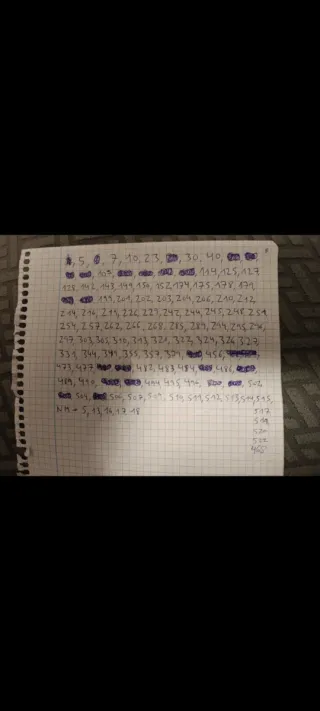 5, 7, 10, 23, 30, 40,
105, 114, 125, 127
128, 142, 143, 149, 150, 152, 174, 175, 178, 179,
199, 201, 202, 203, 204, 206, 210, 212,
214, 216, 219, 226, 227, 242, 244, 245, 248, 251
254, 257, 262, 266, 268, 285, 289, 294, 295, 296,
297, 303, 305, 310, 313, 321, 322, 324, 326, 327
331, 344, 351, 355, 357, 371, 456,
473, 477, 482, 483, 484, 486,
489, 490, 494, 495, 496, 502
504, 506, 507, 510, 511, 512, 513, 514, 515,
517
NM - 5, 13, 16, 17, 18
519
520
522